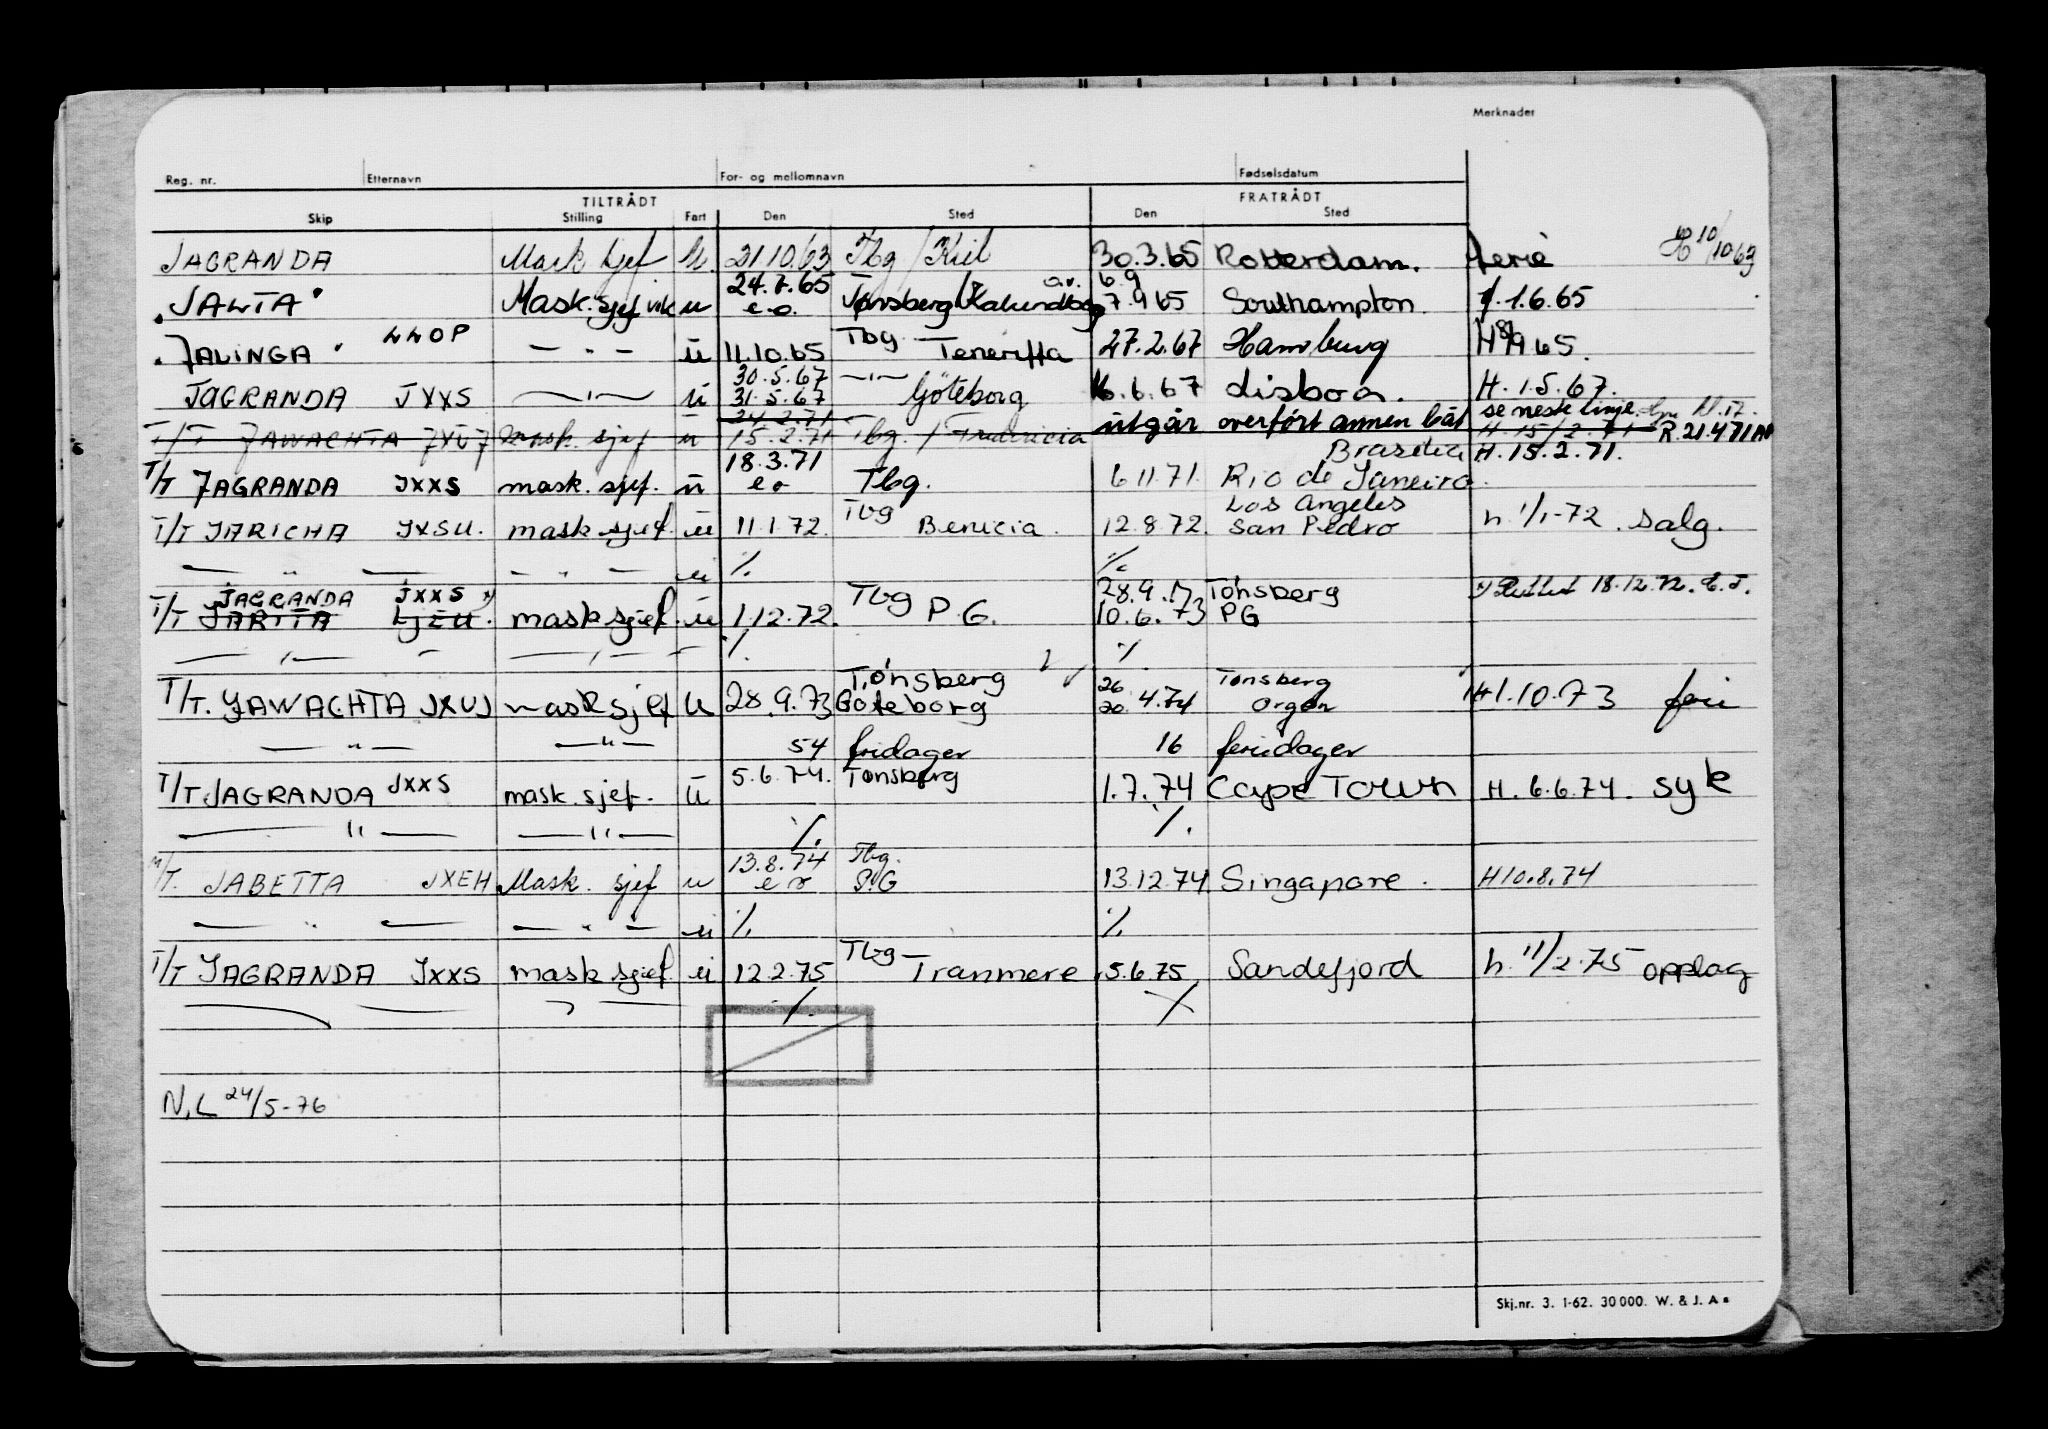 Merknader
Reg. nr. Etternavn For- og mellomnavn Fødselsdatum
TILTRÅDT FRATRÅDT
Skip Stilling Fart Den Sted Den Sted
JAGRANDA Mask sjef u. 21.10.63 Tbg / Kiel 30.3.65 Rotterdam. ferie H 10/10 63
"JALTA" Mask. sjef vik u 24.7.65 e.o. Tønsberg/Kalundborg av. 6.9 7.9 65 Southampton. f. 1.6.65
"JALINGA" LLOP — " — u 11.10.65 Tbg Teneriffa 27.2.67 Hamburg H 8/9 65.
JAGRANDA JXXS — " — u 30.5.67 31.5.67 — " — Göteborg 6.6.67 Lisboa. H. 1.5.67.
T/T JAWACHTA JXUJ mask. sjef u 24.2.71 15.2.71 Tbg. / Fredericia utgår overført annen båt se neste linje H. 15/2.71 R.21.4.71
T/T JAGRANDA JXXS mask. sjef. u 18.3.71 eo Tbg. 6 11 71. Brasilia Rio de Janeiro H. 15.2.71.
T/T JARICHA JXSU. mask sjef. u 11.1.72. Tbg Benicia. 12.8.72. Los Angeles San Pedro h. 1/1-72. salg.
— " — — " — u ./. ./.
JAGRANDA JXXS x)
T/T JARITA LJEU. mask sjef. u 1.12.72. Tbg P.G. 28.9.73 Tønsberg 10.6.73 PG x) Rettet 18.12.72. E.T.
— " — — " — ./. ./.
T/T. JAWACHTA JXUJ mask sjef u 28.9.73 Tønsberg Göteborg 26 20. 4.74 Tønsberg H 1.10.73 feri
— " — — " — 54 fridager 16 feriedager
T/T JAGRANDA JXXS mask. sjef. u 5.6.74. Tønsberg 1.7.74 Cape Town H. 6.6.74. syk
— " — — " — ./. ./.
M/T. JABETTA JXEH Mask. sjef u 13.8.74 e o Tbg. PG 13.12.74 Singapore. H 10.8.74
— " — — " — u ./. ./.
T/T JAGRANDA JXXS mask sjef. u 12.2.75 Tbg- Tranmere 5.6.75 Sandefjord h. 11/2.75 opplag
./. ./.
N.L 24/5-76
Skj.nr. 3. 1-62. 30000. W. & J. A s